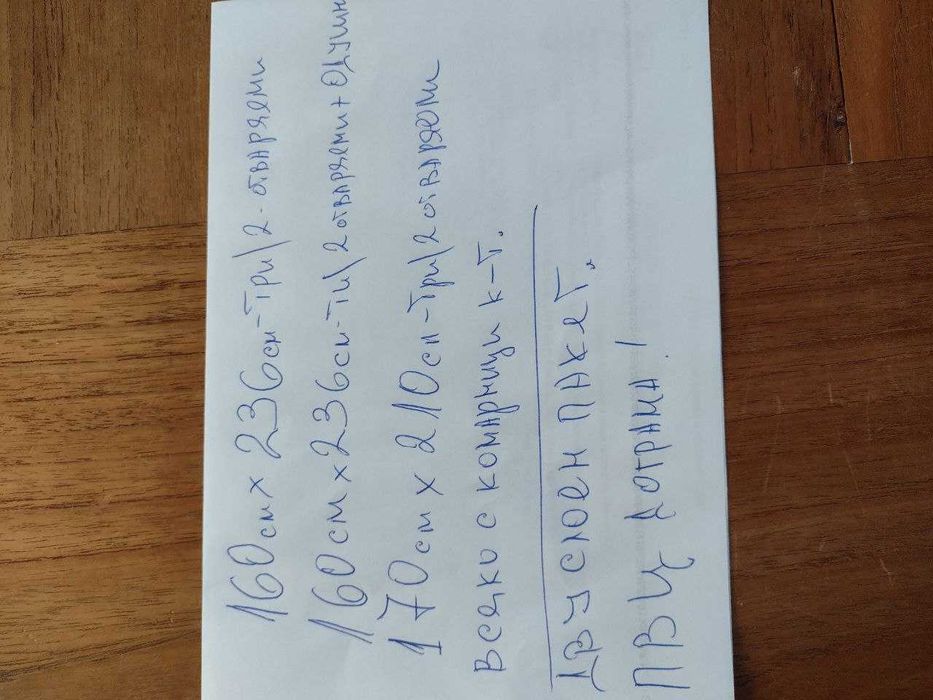 160см x 236см-Три\2-отваряеми
160см x 236см-Ти\2отваряеми+Одушн
170см x 210см-Три\2отваряеми
Всяко с комарници к-т.
Двуслоен пакет.
ПВЦ дограма!